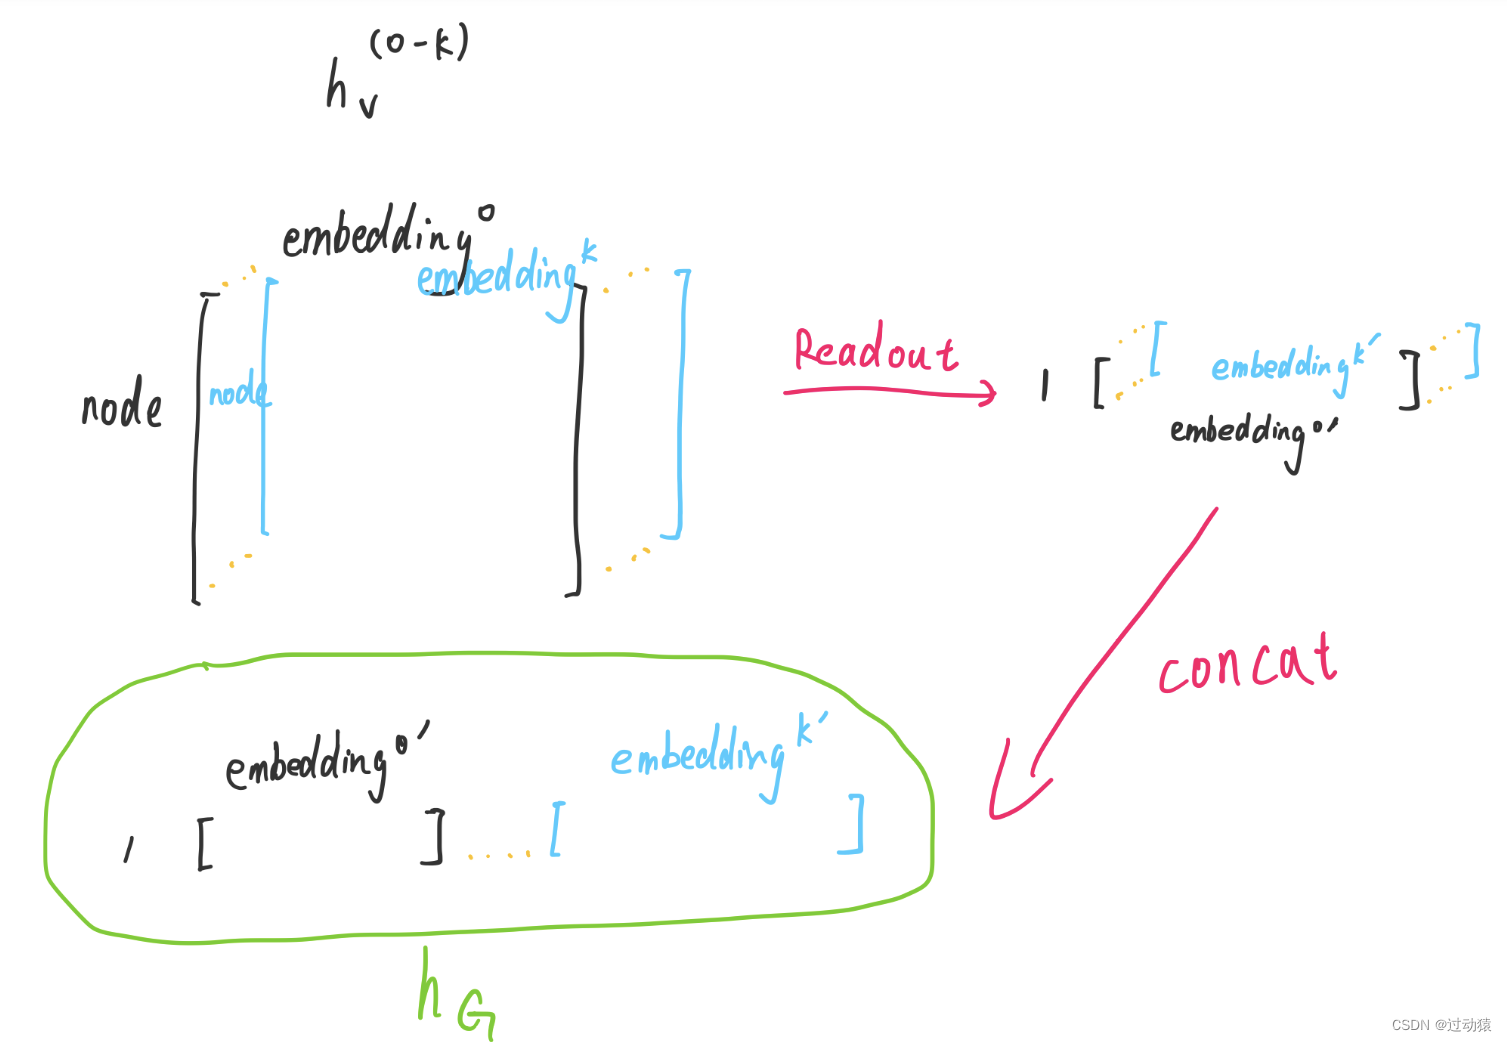 h_v^(0-k)
embedding^0
embedding^k
node
node
Readout
1 [ [ embedding^k' ] ]
embedding^0'
concat
embedding^0'
embedding^k'
1 [ ] .... [ ]
h_G
CSDN @过动猿